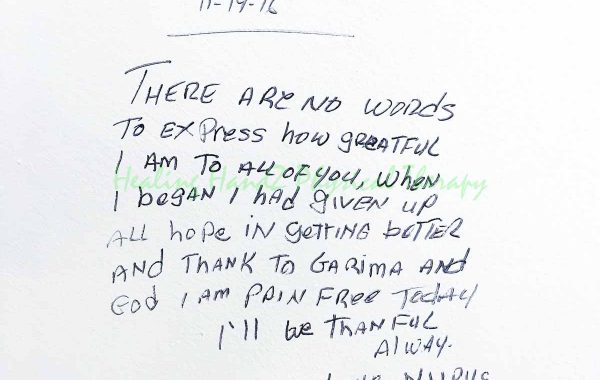 11-19-16
THERE ARE NO WORDS
TO EXPRESS how gREATFUL
I AM TO ALL OF YOU, WHEN
Healing Handz Physical Therapy
I began I had given up
ALL hope IN geTTing beTTER
AND THANK TO GARIMA AND
GOD I AM PAIN FREE TODAY
I'll be THANFUL
AlWAY.